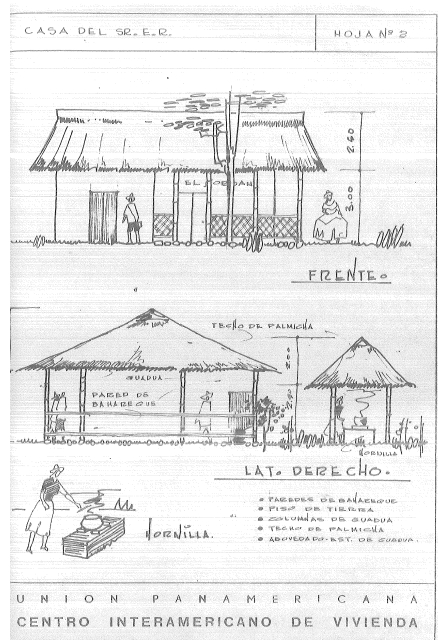 CASA DEL SR. E.R.
HOJA Nº 2
2.60
EL JORDAN
3.00
FRENTE.
TECHO DE PALMICHA
GUADUA
PARED DE
BAHAREQUE
HORNILLA
LAT. DERECHO.
HORNILLA.
• PAREDES DE BAHAREQUE
• PISO DE TIERRA
• COLUMNAS DE GUADUA
• TECHO DE PALMICHA
• ABOVEDADO-EST. DE GUADUA.
UNION PANAMERICANA
CENTRO INTERAMERICANO DE VIVIENDA